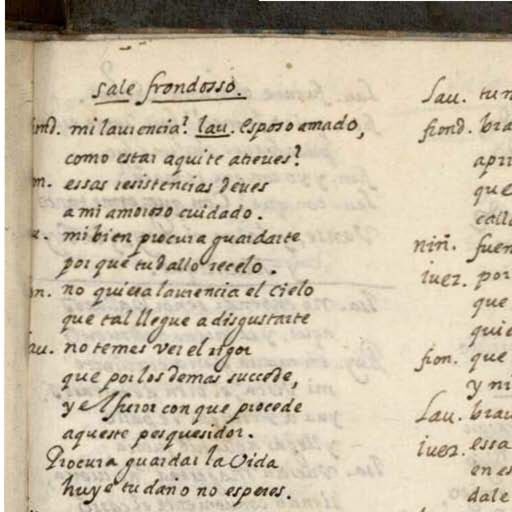 sale frondosso.
ond. mi laurencia? lau. esposo amado,
como estar aqui te atreues?
on. essas resistencias deues
a mi amoroso cuidado.
u. mi bien procura guardarte
por que tu dallo recelo.
on. no quiera laurencia el cielo
que tal llegue a disgustarte
au. no temes ver el rigor
que por los demas succede,
y el furor con que procede
aqueste pesquesidor.
Procura guardar la Vida
huye tu daño no esperes.
Lau. tu n
frond. bra
apri
que
calla
niñ. fuen
iuez. por
que
quie
fron. que
y ni
Lau. brau
iuez. essa
en es
dale